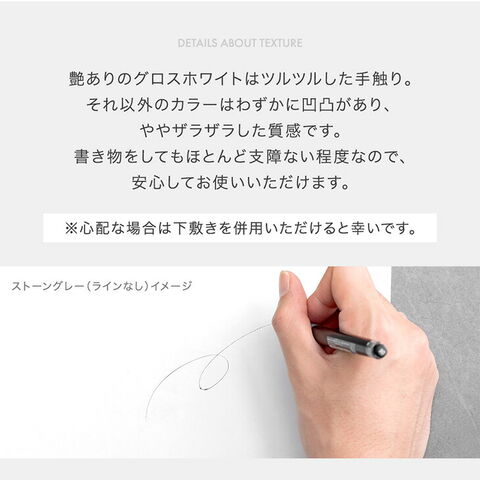 DETAILS ABOUT TEXTURE
艶ありのグロスホワイトはツルツルした手触り。
それ以外のカラーはわずかに凹凸があり、
ややザラザラした質感です。
書き物をしてもほとんど支障ない程度なので、
安心してお使いいただけます。
※心配な場合は下敷きを併用いただけると幸いです。
ストーングレー(ラインなし)イメージ